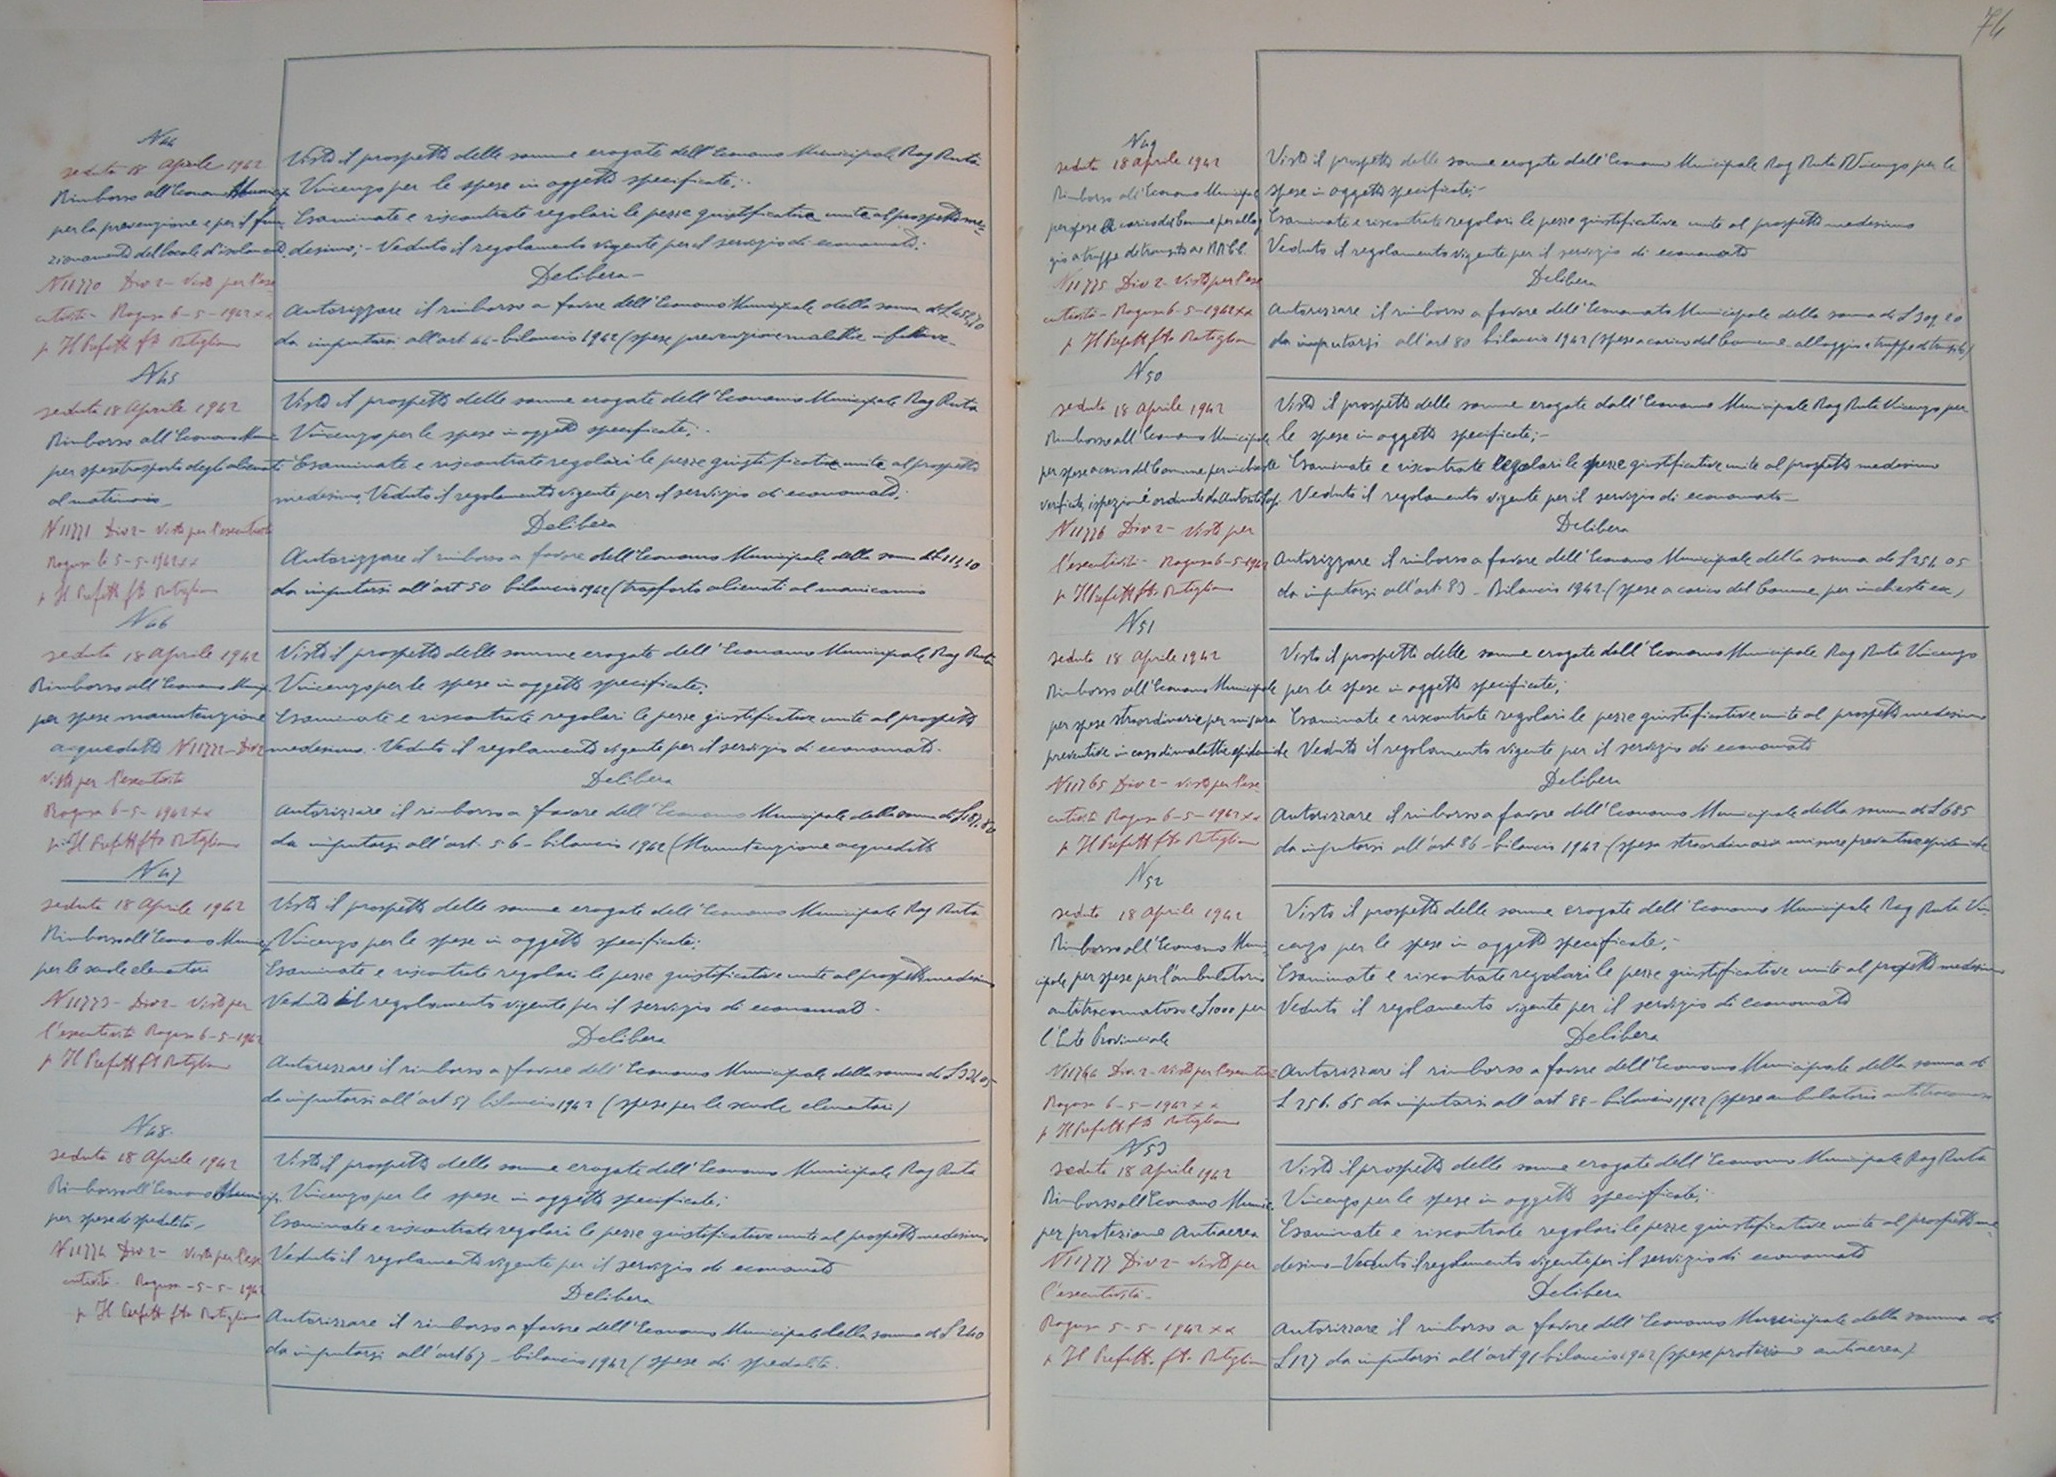 74
N 44
seduta 18 Aprile 1942
Rimborso all'Economo Municip
per la prevenzione e per il fun
zionamento del locale d'isolamento
N 11770 Div 2 - Visto per l'ese
cutività - Ragusa 6-5-1942 XX
p Il Prefetto fto
Visto il prospetto delle somme erogate dall'Economo Municipale Rag Ruta
Vincenzo per le spese in oggetto specificate;
Esaminate e riscontrate regolari le pezze giustificative unite al prospetto me-
desimo; - Veduto il regolamento vigente per il servizio di economato.
Delibera -
Autorizzare il rimborso a favore dell'Economo Municipale della somma di L
da imputarsi all'art 44 - bilancio 1942 (spese prevenzione malattie infettive
N 45
seduta 18 Aprile 1942
Rimborso all'Economo Muni
per spese trasporto degli alienati
al
N 11771 Div 2 - Visto per l'esecutività
Ragusa li 5-5-1942 XX
p Il Prefetto fto
Visto il prospetto delle somme erogate dall'Economo Municipale Rag Ruta
Vincenzo per le spese in oggetto specificate;
Esaminate e riscontrate regolari le pezze giustificative unite al prospetto
medesimo. Veduto il regolamento vigente per il servizio di economato.
Delibera
Autorizzare il rimborso a favore dell'Economo Municipale della somma di L 111,10
da imputarsi all'art 50 bilancio 1942 (trasporto alienati al manicomio
N 46
seduta 18 Aprile 1942
Rimborso all'Economo Munip
per spese manutenzione
acquedotto N 11772 - Div 2
Visto per l'esecutività
Ragusa 6-5-1942 XX
p. Il Prefetto fto
Visto il prospetto delle somme erogate dall'Economo Municipale Rag Ruta
Vincenzo per le spese in oggetto specificate;
Esaminate e riscontrate regolari le pezze giustificative unite al prospetto
medesimo. Veduto il regolamento vigente per il servizio di economato.
Delibera
Autorizzare il rimborso a favore dell'Economo Municipale della somma di L
da imputarsi all'art. 56 - bilancio 1942 (Manutenzione acquedotto
N 47
seduta 18 Aprile 1942
Rimborso all'Economo Munic
per le scuole elementari
N 11773 - Div 2 - Visto per
l'esecutività Ragusa 6-5-1942
p Il Prefetto fto
Visto il prospetto delle somme erogate dall'Economo Municipale Rag Ruta
Vincenzo per le spese in oggetto specificate;
Esaminate e riscontrate regolari le pezze giustificative unite al prospetto medesimo
Veduto il regolamento vigente per il servizio di economato.
Delibera
Autorizzare il rimborso a favore dell'Economo Municipale della somma di L
da imputarsi all'art 57 bilancio 1942 (spese per le scuole elementari)
N 48.
seduta 18 Aprile 1942
Rimborso all'Economo Municip.
per spese di spedalità -
N 11774 Div 2 - Visto per l'ese
cutività - Ragusa - 5-5-1942
p Il Prefetto fto
Visto il prospetto delle somme erogate dall'Economo Municipale Rag Ruta
Vincenzo per le spese in oggetto specificate;
Esaminate e riscontrate regolari le pezze giustificative unite al prospetto medesimo
Veduto il regolamento vigente per il servizio di economato
Delibera
Autorizzare il rimborso a favore dell'Economo Municipale della somma di L 240
da imputarsi all'art 67 - bilancio 1942 (spese di spedalità.
N 49
seduta 18 Aprile 1942
Rimborso all'Economo Municipale
per spese a carico del Comune per allog
gio a truppe di transito ai
N 11775 Div 2 - Visto per l'ese
cutività - Ragusa 6-5-1942 XX
p Il Prefetto fto
Visto il prospetto delle somme erogate dall'Economo Municipale Rag Ruta Vincenzo per le
spese in oggetto specificate; -
Esaminate e riscontrate regolari le pezze giustificative unite al prospetto medesimo
Veduto il regolamento vigente per il servizio di economato
Delibera
Autorizzare il rimborso a favore dell'Economato Municipale della somma di L 309 20
da imputarsi all'art 80 bilancio 1942 (spese a carico del Comune - alloggio a truppe di transito)
N 50
seduta 18 Aprile 1942
Rimborso all'Economo Municipale
per spese a carico del Comune per inchieste
verifiche, ispezioni ordinate da Autorità Sup.
N 11776 Div 2 - Visto per
l'esecutività - Ragusa 6-5-1942
p Il Prefetto fto
Visto il prospetto delle somme erogate dall'Economo Municipale Rag Ruta Vincenzo per
le spese in oggetto specificate; -
Esaminate e riscontrate regolari le pezze giustificative unite al prospetto medesimo
Veduto il regolamento vigente per il servizio di economato -
Delibera
Autorizzare il rimborso a favore dell'Economo Municipale della somma di L 254 05
da imputarsi all'art. 83 - Bilancio 1942 (spese a carico del Comune per inchieste ecc)
N 51
seduta 18 Aprile 1942
Rimborso all'Economo Municipale
per spese straordinarie per misure
preventive in caso di malattie epidemiche
N 11765 Div 2 - Visto per l'ese
cutività Ragusa 6-5-1942 XX
p Il Prefetto fto
Visto il prospetto delle somme erogate dall'Economo Municipale Rag Ruta Vincenzo
per le spese in oggetto specificate;
Esaminate e riscontrate regolari le pezze giustificative unite al prospetto medesimo
Veduto il regolamento vigente per il servizio di economato
Delibera
Autorizzare il rimborso a favore dell'Economo Municipale della somma di L 685
da imputarsi all'art 86 - bilancio 1942 (spesa straordinaria misure preventive epidemiche
N 52
seduta 18 Aprile 1942
Rimborso all'Economo Muni-
cipale per spese per l'ambulatorio
antitracomatoso e L 1000 per
l'Ente Provinciale
Div. 2 - Visto per l'esecutività
Ragusa 6-5-1942 XX
p Il Prefetto fto
Visto il prospetto delle somme erogate dall'Economo Municipale Rag Ruta Vin-
cenzo per le spese in oggetto specificate; -
Esaminate e riscontrate regolari le pezze giustificative unite al prospetto medesimo
Veduto il regolamento vigente per il servizio di economato
Delibera
Autorizzare il rimborso a favore dell'Economo Municipale della somma di
L 256. 65 da imputarsi all'art 88 - bilancio 1942 (spese ambulatorio antitracomatoso
N 53
seduta 18 Aprile 1942
Rimborso all'Economo Munic.
per protezione Antiaerea
N 11777 Div 2 - Visto per
l'esecutività -
Ragusa 5-5-1942 XX
p Il Prefetto. fto.
Visto il prospetto delle somme erogate dall'Economo Municipale Rag Ruta
Vincenzo per le spese in oggetto specificate;
Esaminate e riscontrate regolari le pezze giustificative unite al prospetto me-
desimo - Veduto il regolamento vigente per il servizio di economato
Delibera
Autorizzare il rimborso a favore dell'Economo Municipale della somma di
L 127 da imputarsi all'art 91 bilancio 1942 (spese protezione antiaerea)